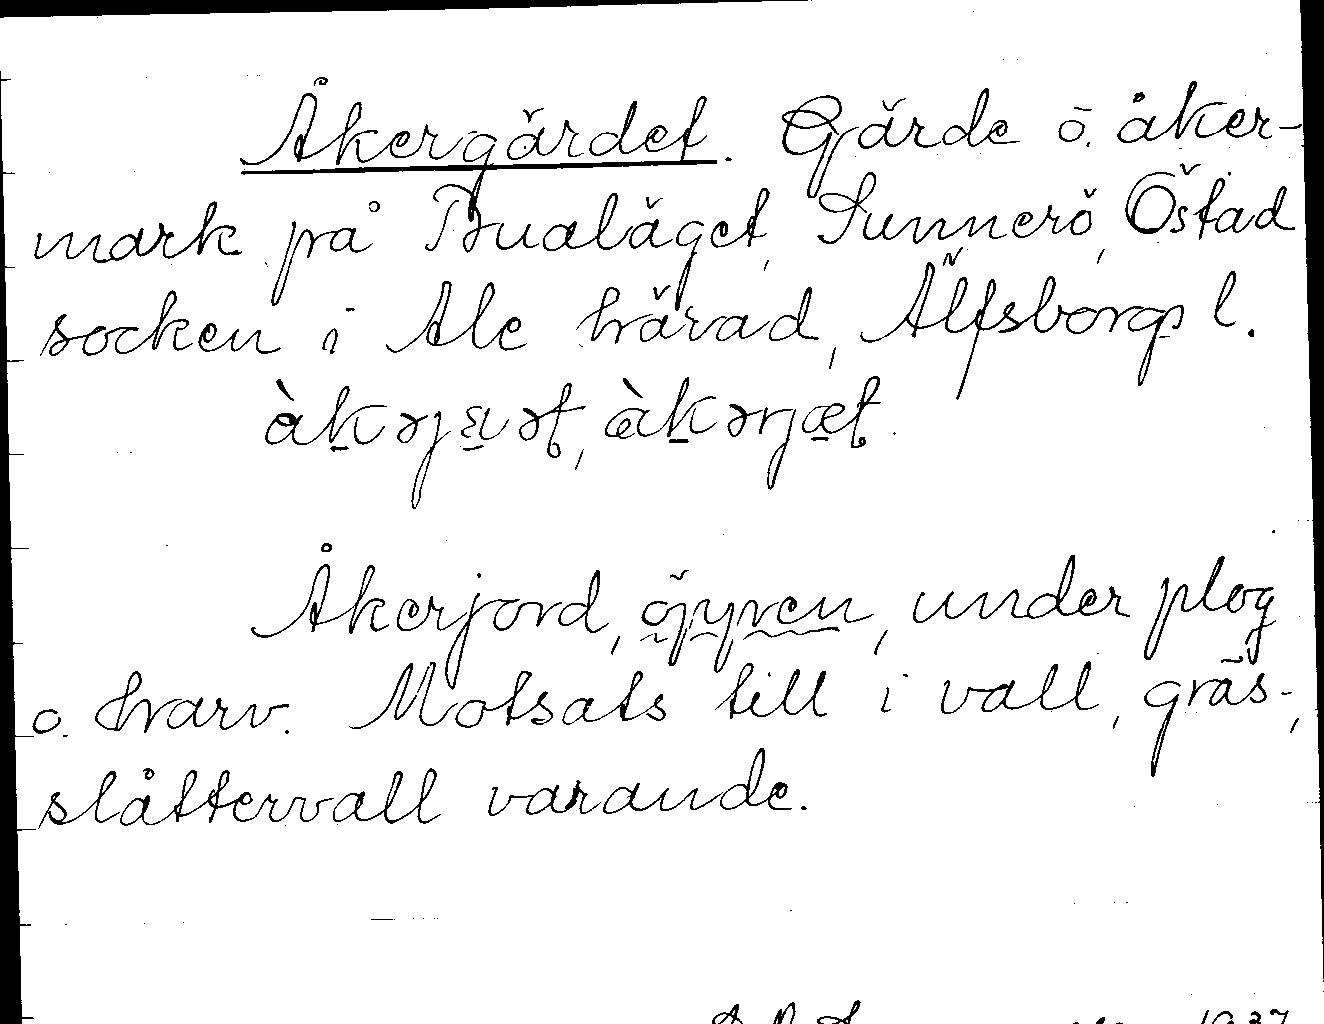 Åkergärdet. Gärde o. åker-
mark på Bualäget, Sunnerö, Östad
socken i Ale härad, Älfsborgs l.
Åkerjord, öppen, under plog
o. harv. Motsats till i vall, gräs-,
slåttervall varande.
1937